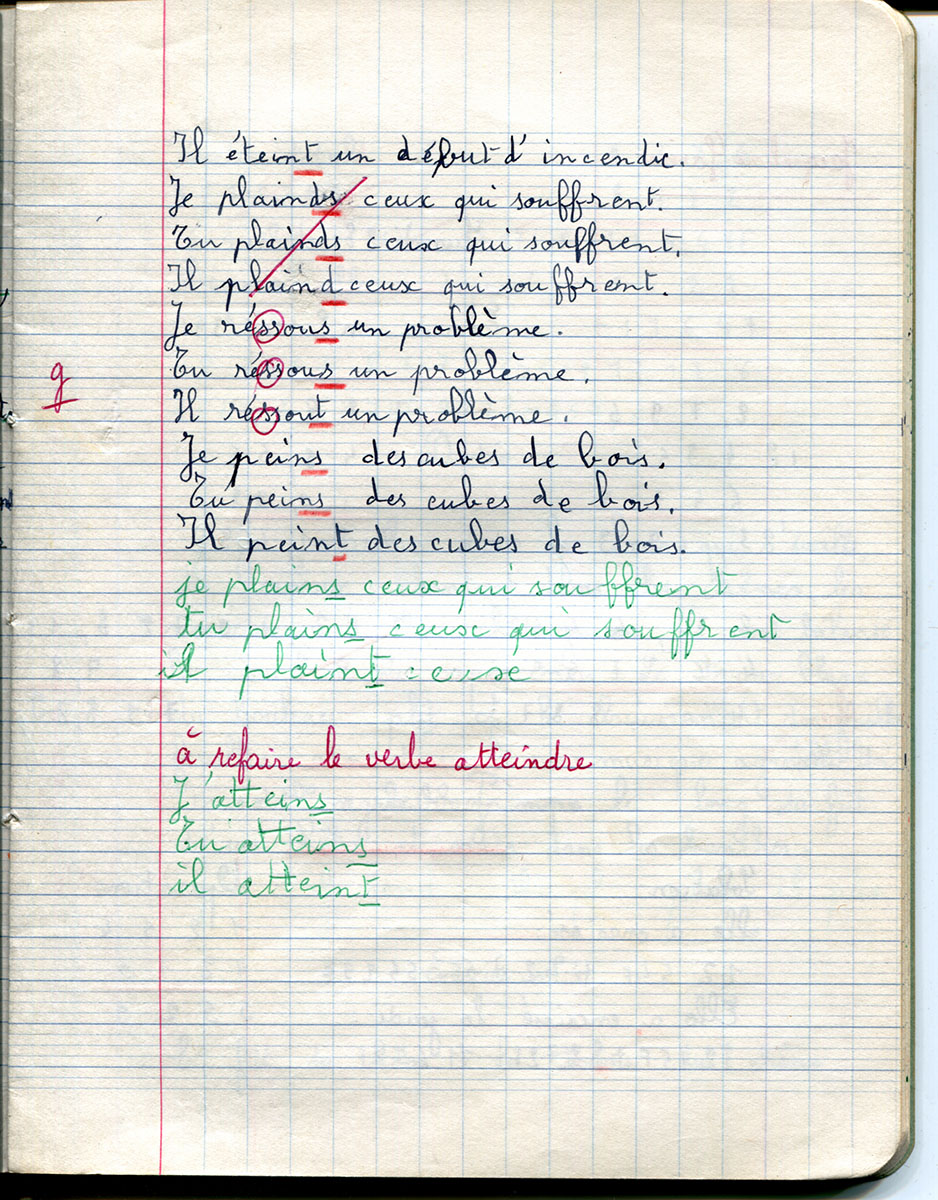 Il éteint un début d'incendie.
Je plainds ceux qui souffrent.
Tu plainds ceux qui souffrent.
Il plaind ceux qui souffrent.
Je réssous un problème.
Tu réssous un problème.
g
Il réssout un problème.
Je peins des cubes de bois.
Tu peins des cubes de bois.
Il peint des cubes de bois.
je plains ceux qui souffrent
tu plains ceux qui souffrent
il plaint ceux
à refaire le verbe atteindre
J'atteins
Tu atteins
il atteint